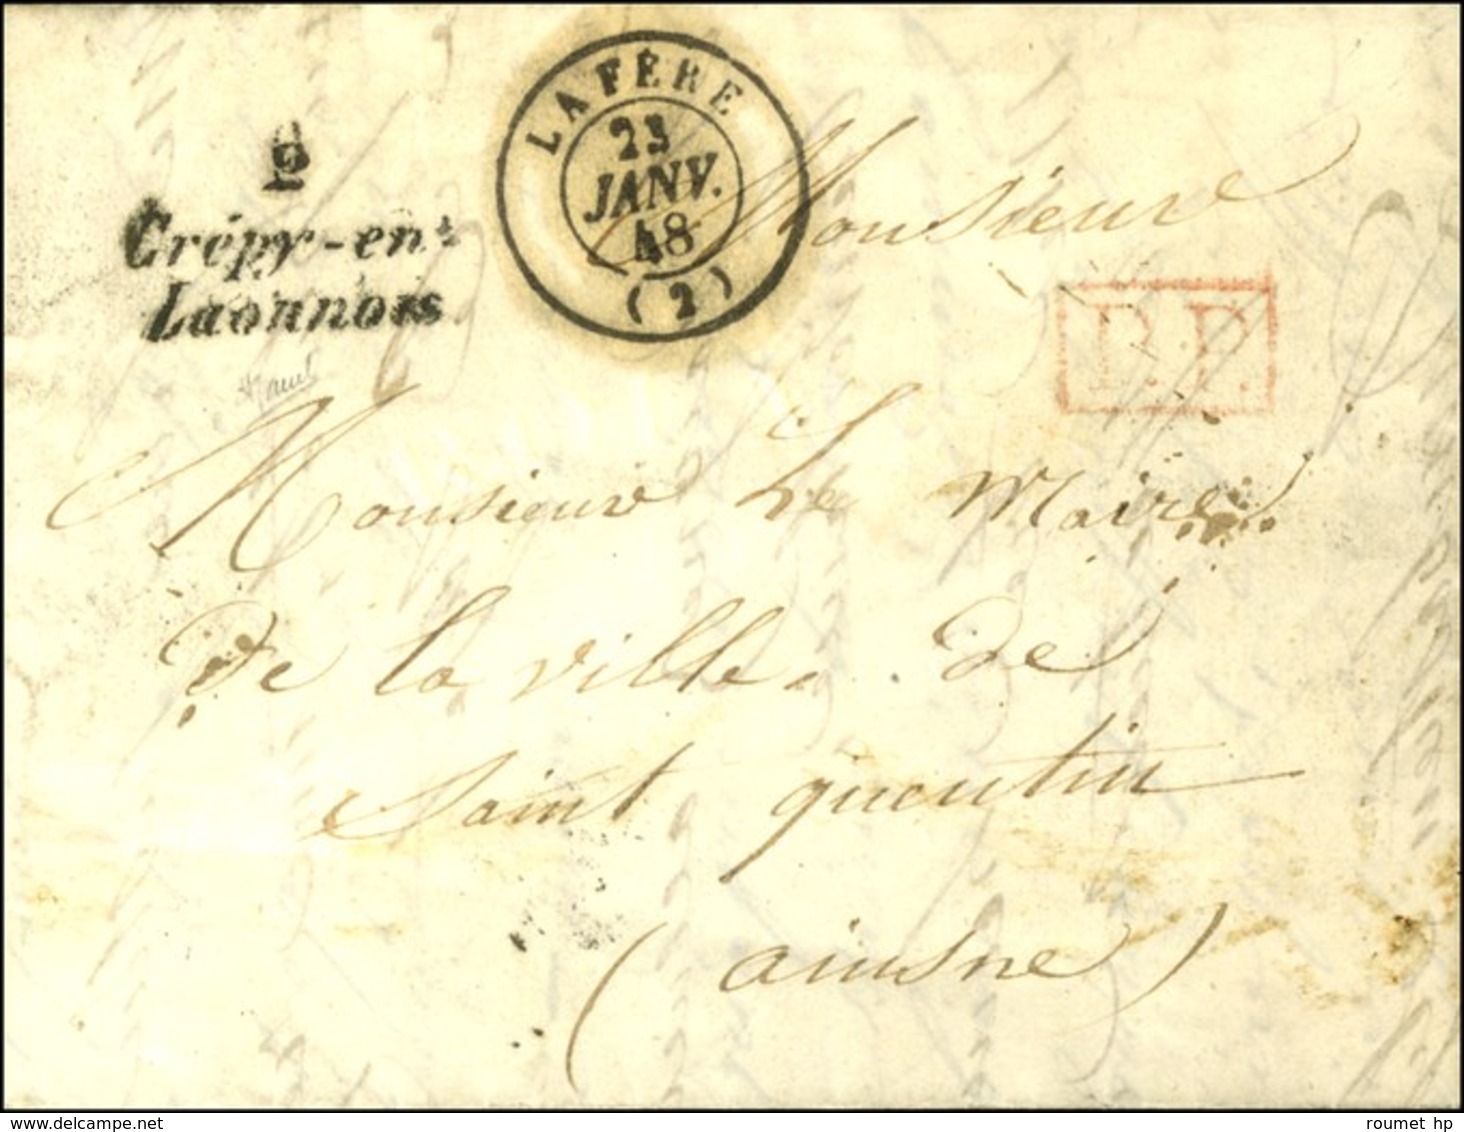 LA FÈRE
23
JANV.
48
(2)
2
Crépy-en-
Laonnois
Monsieur
P.P.
Monsieur Le Maire
De la ville de
Saint quentin
(aiusne)
roumet hp